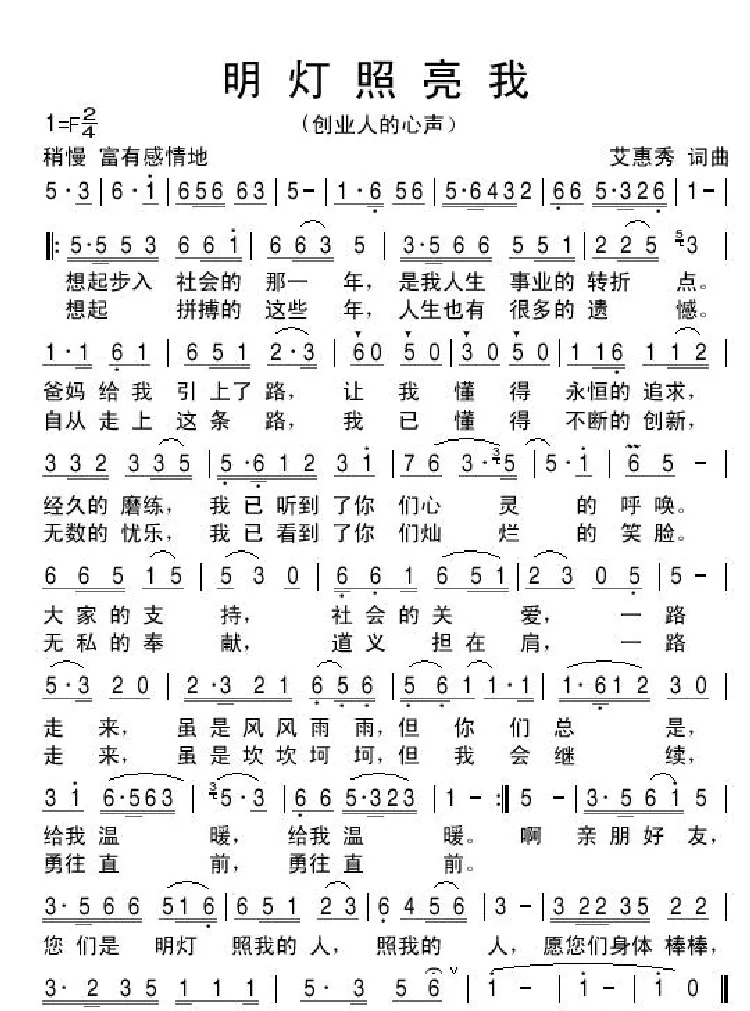 明灯照亮我
（创业人的心声）
1=F2/4
稍慢 富有感情地 艾惠秀 词曲
5·3 | 6·i | 656 63 | 5– | 1·6 56 | 5·6432 | 66 5·326 | 1– |
|: 5·553 661 | 663 5 | 3·566 551 | 225 53 |
想起步入 社会的 那一 年，是我人生 事业的 转折 点。
想起 拼搏的 这些 年，人生也有 很多的 遗 憾。
1·1 61 | 651 2·3 | 60 50 | 30 50 | 116 112 |
爸妈 给 我 引 上了 路， 让 我 懂 得 永恒的 追求，
自从 走 上 这 条 路， 我 已 懂 得 不断的 创新，
332 335 | 5·612 31 | 76 3·35 | 5·i | 65– |
经久的 磨练， 我 已 听到 了你 们心 灵 的 呼 唤。
无数的 忧乐， 我 已 看到 了你 们灿 烂 的 笑 脸。
665 15 | 530 | 661 651 | 23 05 | 5– |
大 家 的 支 持， 社 会 的 关 爱， 一 路
无 私 的 奉 献， 道 义 担 在 肩， 一 路
5·3 20 | 2·321 656 | 56 11·1 | 1·612 30 |
走 来， 虽 是 风 风 雨 雨，但 你 们 总 是，
走 来， 虽 是 坎 坎 坷 坷，但 我 会 继 续，
31 6·563 | 35·3 | 66 5·323 | 1– :| 5– | 3·561 5 |
给我 温 暖， 给我 温 暖。 啊 亲 朋 好 友，
勇往 直 前， 勇往 直 前。
3·566 516 | 651 23 | 6456 | 3– | 32235 22 |
您 们是 明灯 照我的 人， 照我的 人，愿您们身体 棒棒，
3·235 111 | 5·3 56 ∨ | 1– | 1– | 10 |